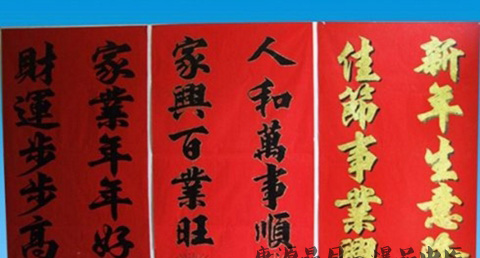 新年生意
佳節事業興
人和萬事順
家興百業旺
家業年年好
財運步步高